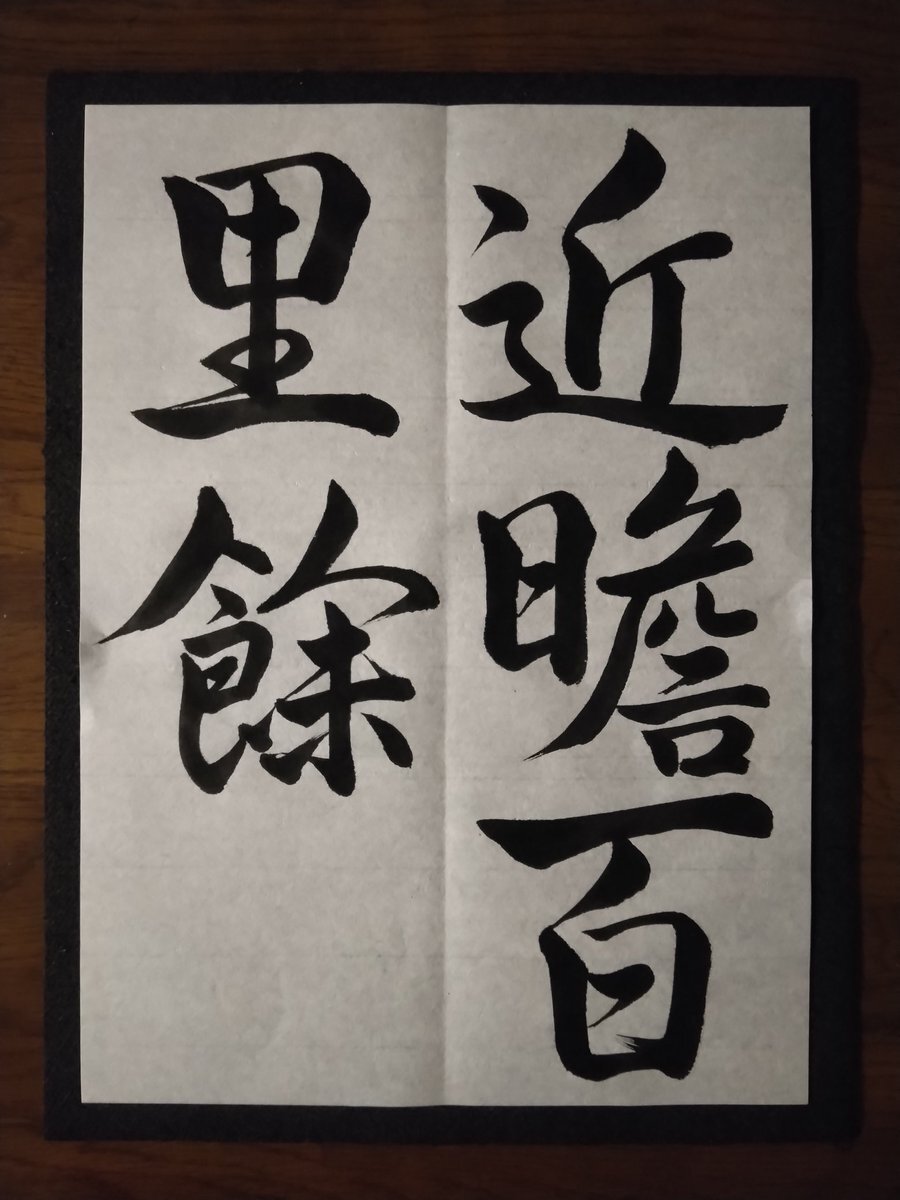 近瞻百
里餘